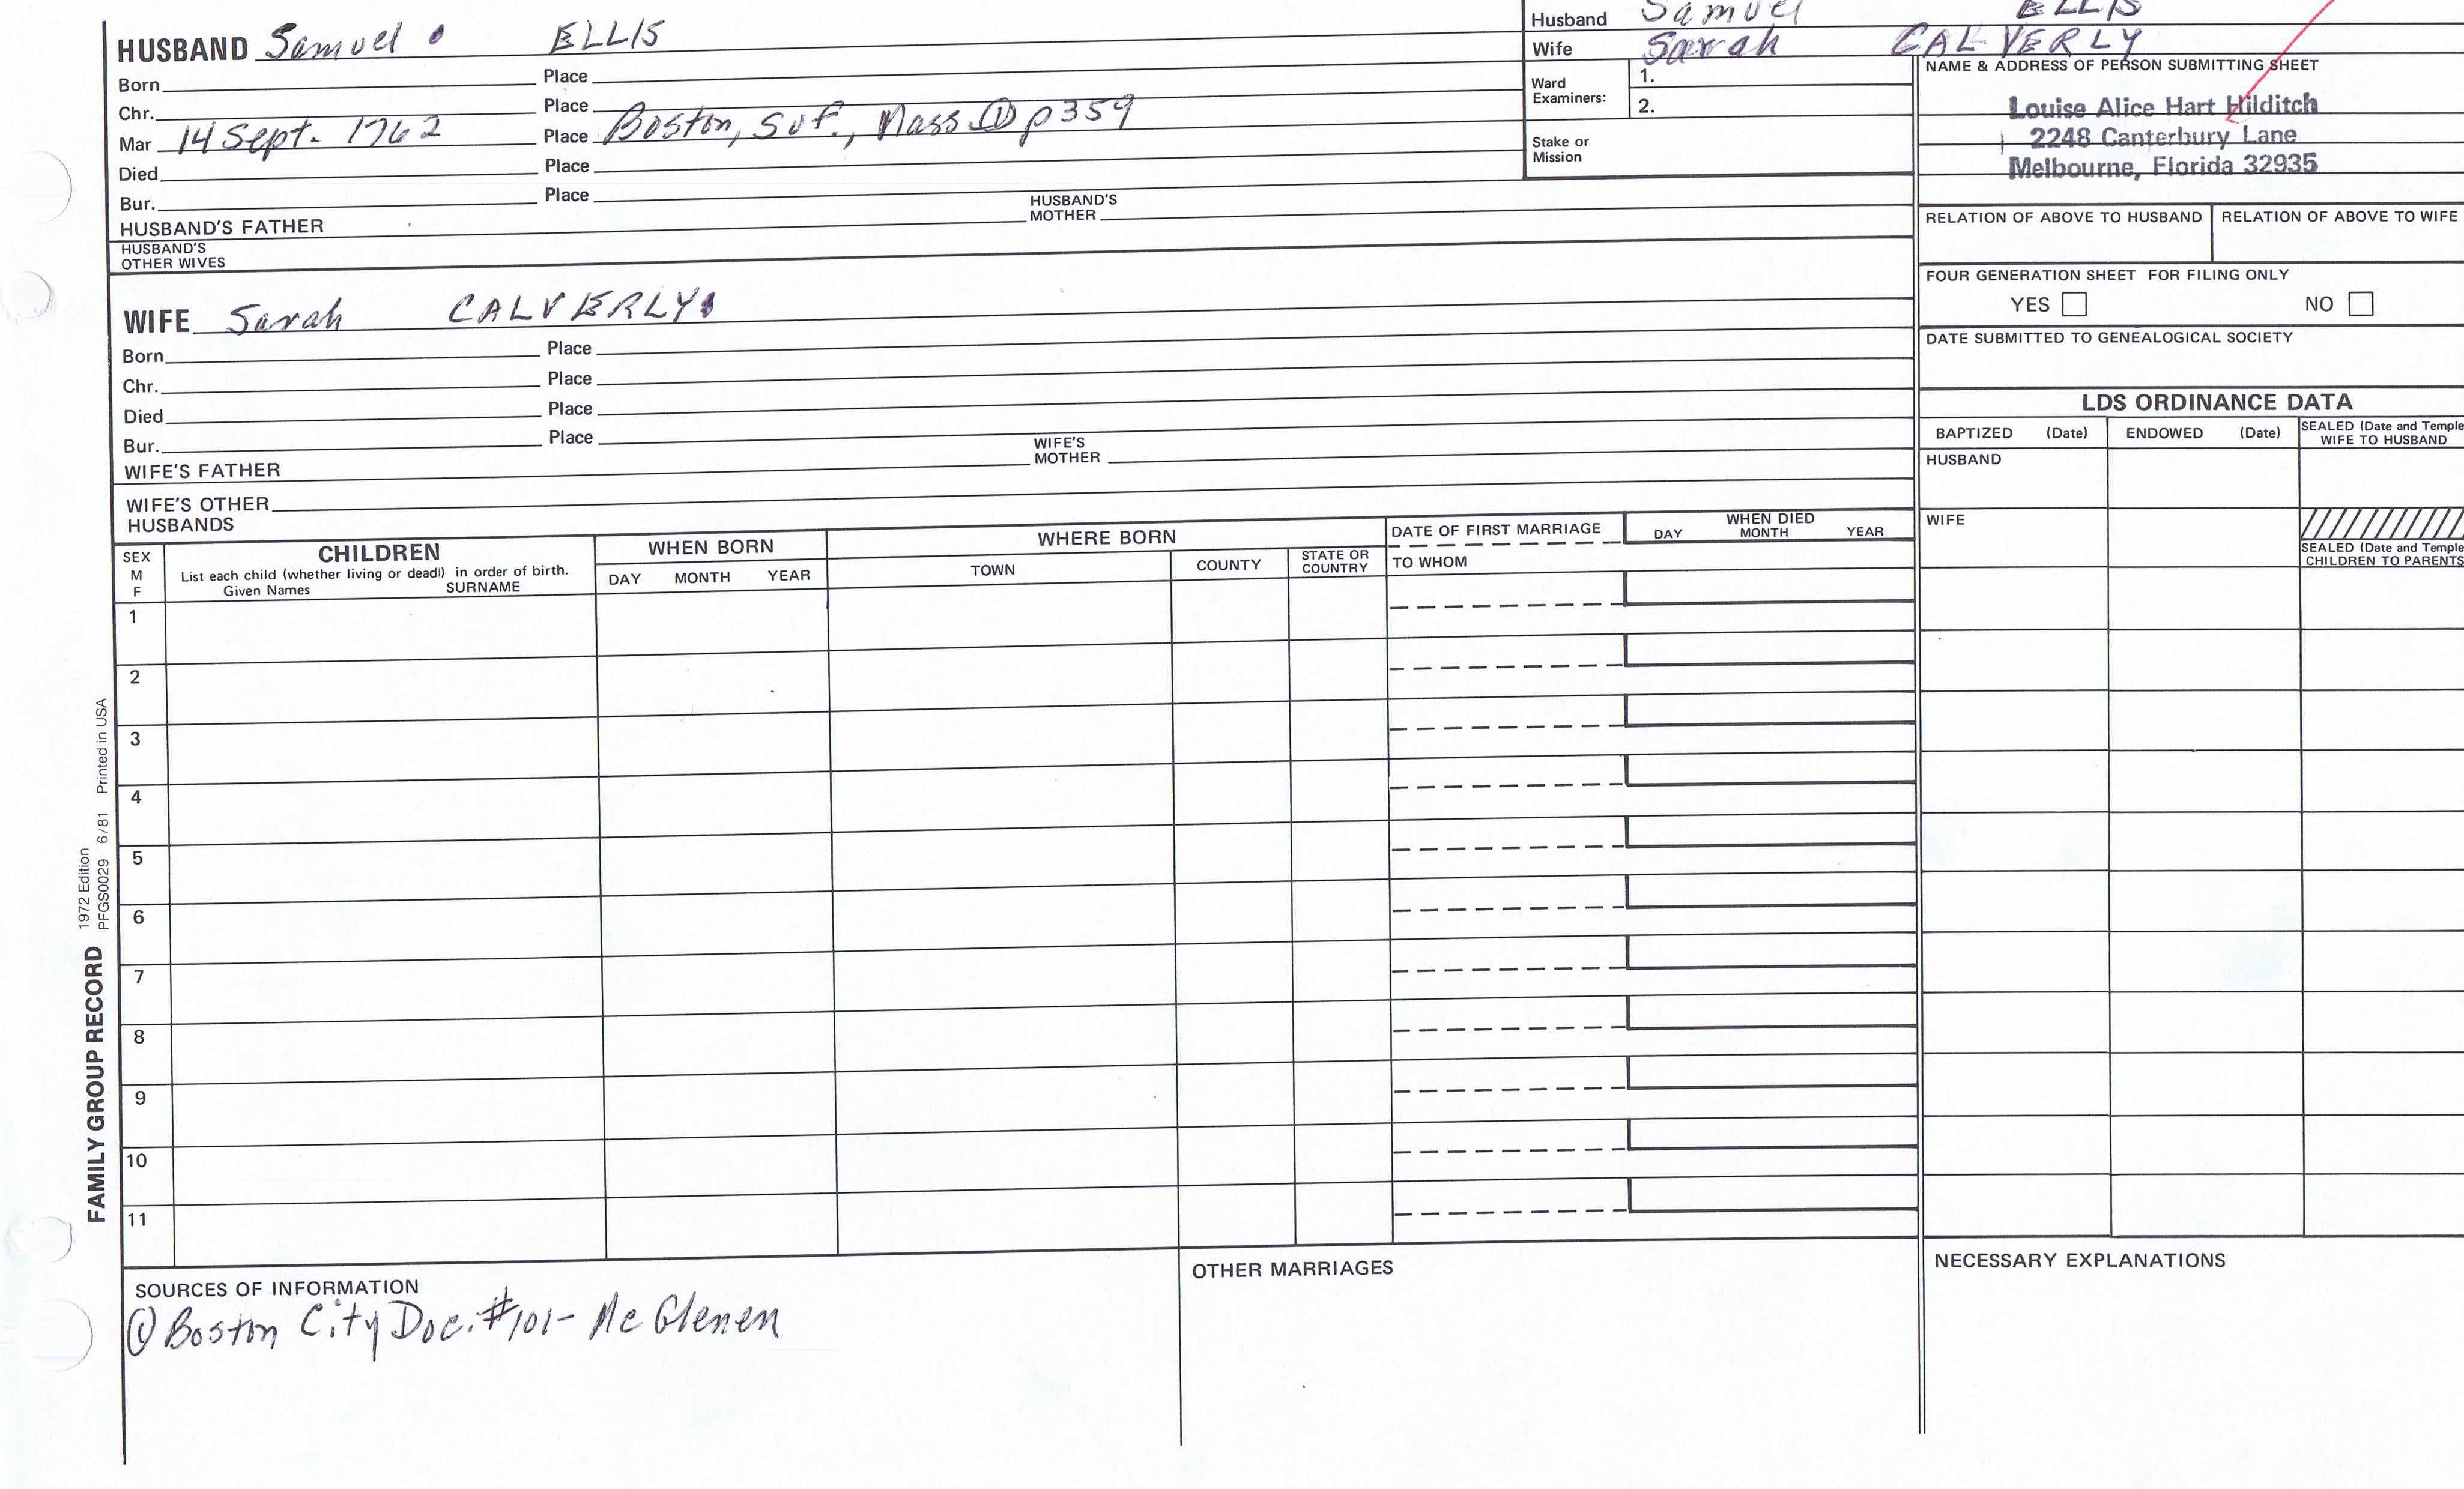 HUSBAND Samuel ELLIS
Born Place
Chr. Place
Mar 14 Sept. 1762 Place Boston, Suf., Mass ① p359
Died Place
Bur. Place
HUSBAND'S FATHER HUSBAND'S MOTHER
HUSBAND'S OTHER WIVES
WIFE Sarah CALVERLY
Born Place
Chr. Place
Died Place
Bur. Place
WIFE'S FATHER WIFE'S MOTHER
WIFE'S OTHER HUSBANDS
Husband Samuel ELLIS
Wife Sarah CALVERLY
Ward Examiners: 1.
2.
Stake or Mission
NAME & ADDRESS OF PERSON SUBMITTING SHEET
Louise Alice Hart Hilditch
2248 Canterbury Lane
Melbourne, Florida 32935
RELATION OF ABOVE TO HUSBAND RELATION OF ABOVE TO WIFE
FOUR GENERATION SHEET FOR FILING ONLY
YES NO
DATE SUBMITTED TO GENEALOGICAL SOCIETY
LDS ORDINANCE DATA
BAPTIZED (Date) ENDOWED (Date) SEALED (Date and Temple
WIFE TO HUSBAND
HUSBAND
WIFE
SEALED (Date and Temple
CHILDREN TO PARENTS
SEX
M
F
CHILDREN
List each child (whether living or dead) in order of birth.
Given Names SURNAME
WHEN BORN
DAY MONTH YEAR
WHERE BORN
TOWN COUNTY STATE OR COUNTRY
DATE OF FIRST MARRIAGE
TO WHOM
WHEN DIED
DAY MONTH YEAR
1
2
3
4
5
6
7
8
9
10
11
FAMILY GROUP RECORD
1972 Edition
PFGS0029 6/81 Printed in USA
SOURCES OF INFORMATION
① Boston City Doc. #101- McGlenen
OTHER MARRIAGES
NECESSARY EXPLANATIONS